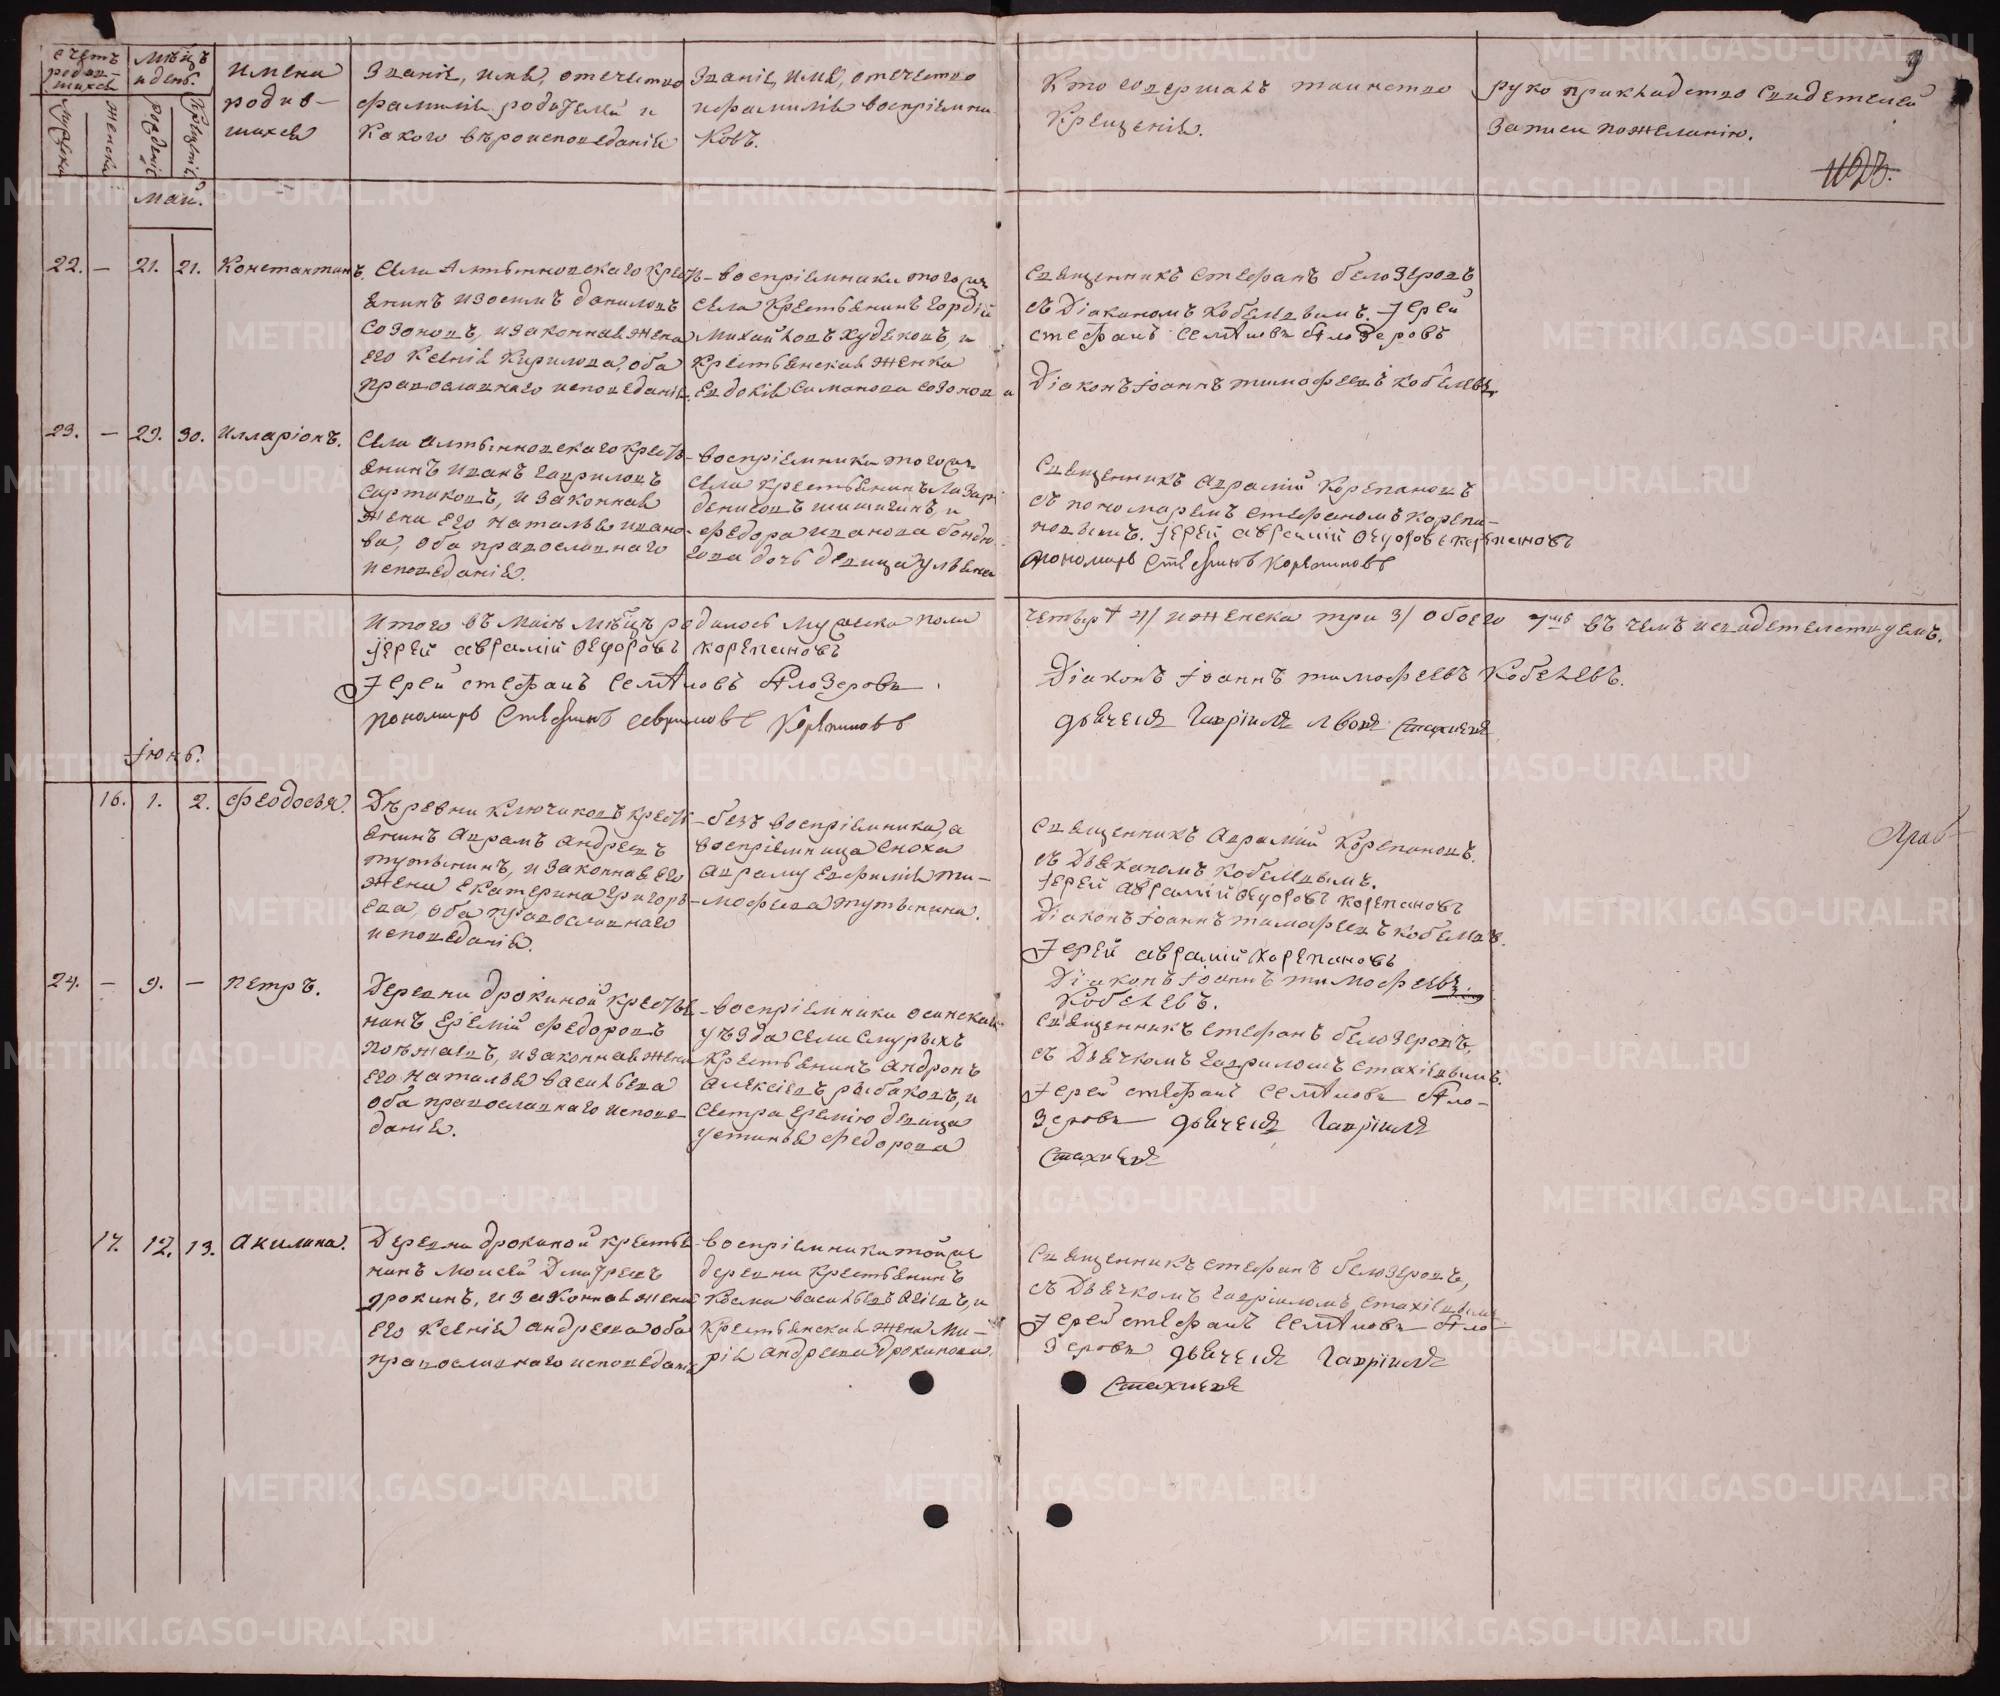 9
1123.
Счетъ родив-шихся
Мѣсцъ и день
Имена родив-шихся
Званіе, имя, отечество
фамилія родителей и
какого вѣроисповеданія
Званіе, имя, отечество
и фамилія воспріемни-
ковъ.
Кто совершалъ таинство
Крещенія.
рукоприкладство свидетелей
записи пожеланію.
мужеска
женска
рожденіе
крещеніе
май.
22. — 21. 21. Константинъ.
Села Алтынновскаго кресть-
янинъ Изосимъ Даниловъ
Созоновъ, и законная жена
его Ксенія Кирилова, оба
православнаго исповеданія.
воспріемники того же
села крестьянинъ Гордій
Михайловъ Худековъ, и
крестьянская женка
Евдокія Симонова Созонова
Священникъ Стефанъ Белозеровъ
съ Діакономъ Кобелевымъ. Іерей
Стефанъ Семеновъ Белозеровъ
Діаконъ Іоаннъ Тимофеевъ Кобелевъ
23. — 29. 30. Илларіонъ.
Села Алтынновскаго кресть-
янинъ Иванъ Гавриловъ
Сартаковъ, и законная
жена его Наталья Ивано-
ва, оба православнаго
исповеданія.
воспріемники того же
села крестьянинъ Лазарь
Денисовъ Шишигинъ, и
Федора Иванова Бондю-
гова дочь девица Ульяна
Священникъ Аврамій Корепановъ
съ пономаремъ Стефаномъ Корепа-
новымъ. Іерей Аврамій Федоровъ Корепановъ
пономарь Стефанъ Корепановъ
Итого въ маіѣ мѣсцѣ родилось мужеска пола
четыре 4/ и женска три 3/ обоего 7мь въ чемъ и свидетелствуемъ.
Іерей Аврамій Федоровъ Корепановъ
Іерей Стефанъ Семеновъ Белозеровъ
Діаконъ Іоаннъ Тимофеевъ Кобелевъ.
пономарь Стефанъ Аврамовъ Корепановъ
дьячекъ Гавріилъ Львовъ Стахиевъ
Іюнь.
16. 1. 2. Феодосья.
Деревни Ключиковъ кресть-
янинъ Аврамъ Андреевъ
Тутынинъ, и законная его
жена Екатерина Григорь-
ева, оба православнаго
исповеданія.
безъ воспріемника, а
воспріемница сноха
Авраму Евфимія Ти-
мофеева Тутынина.
Священникъ Аврамій Корепановъ.
съ Дьякономъ Кобелевымъ.
Іерей Аврамій Федоровъ Корепановъ
Діаконъ Іоаннъ Тимофеевъ Кобелевъ.
Іерей Аврамій Корепановъ
Діаконъ Іоаннъ Тимофеевъ
Кобелевъ.
24. — 9. — Петръ.
Деревни Дрокиной крестья-
нинъ Еремій Федоровъ
Поежаевъ, и законная жена
его Наталья Васильева
оба православнаго испове-
данія.
воспріемники Осинскаго
уѣзда села Смурыхъ
крестьянинъ Андронъ
Алексіевъ Рыбаковъ, и
сестра Еремію девица
Устинья Федорова
Священникъ Стефанъ Белозеровъ,
съ Дьячкомъ Гавриломъ Стахіевымъ.
Іерей Стефанъ Семеновъ Бело-
зеровъ дьячекъ Гавріилъ
Стахиевъ
17. 12. 13. Акилина.
Деревни Дрокиной крестья-
нинъ Моисей Дмитреевъ
Дрокинъ, и законная жена
его Ксенія Андреева оба
православнаго исповеданія
воспріемники той же
деревни крестьянинъ
Косма Васильевъ Агіевъ, и
крестьянская жена Ма-
рія Андреева Дрокинова.
Священникъ Стефанъ Белозеровъ,
съ Дьячкомъ Гавріиломъ Стахіевымъ
Іерей Стефанъ Семеновъ Бело-
зеровъ дьячекъ Гавріилъ
Стахиевъ
Прав-
METRIKI.GASO-URAL.RU